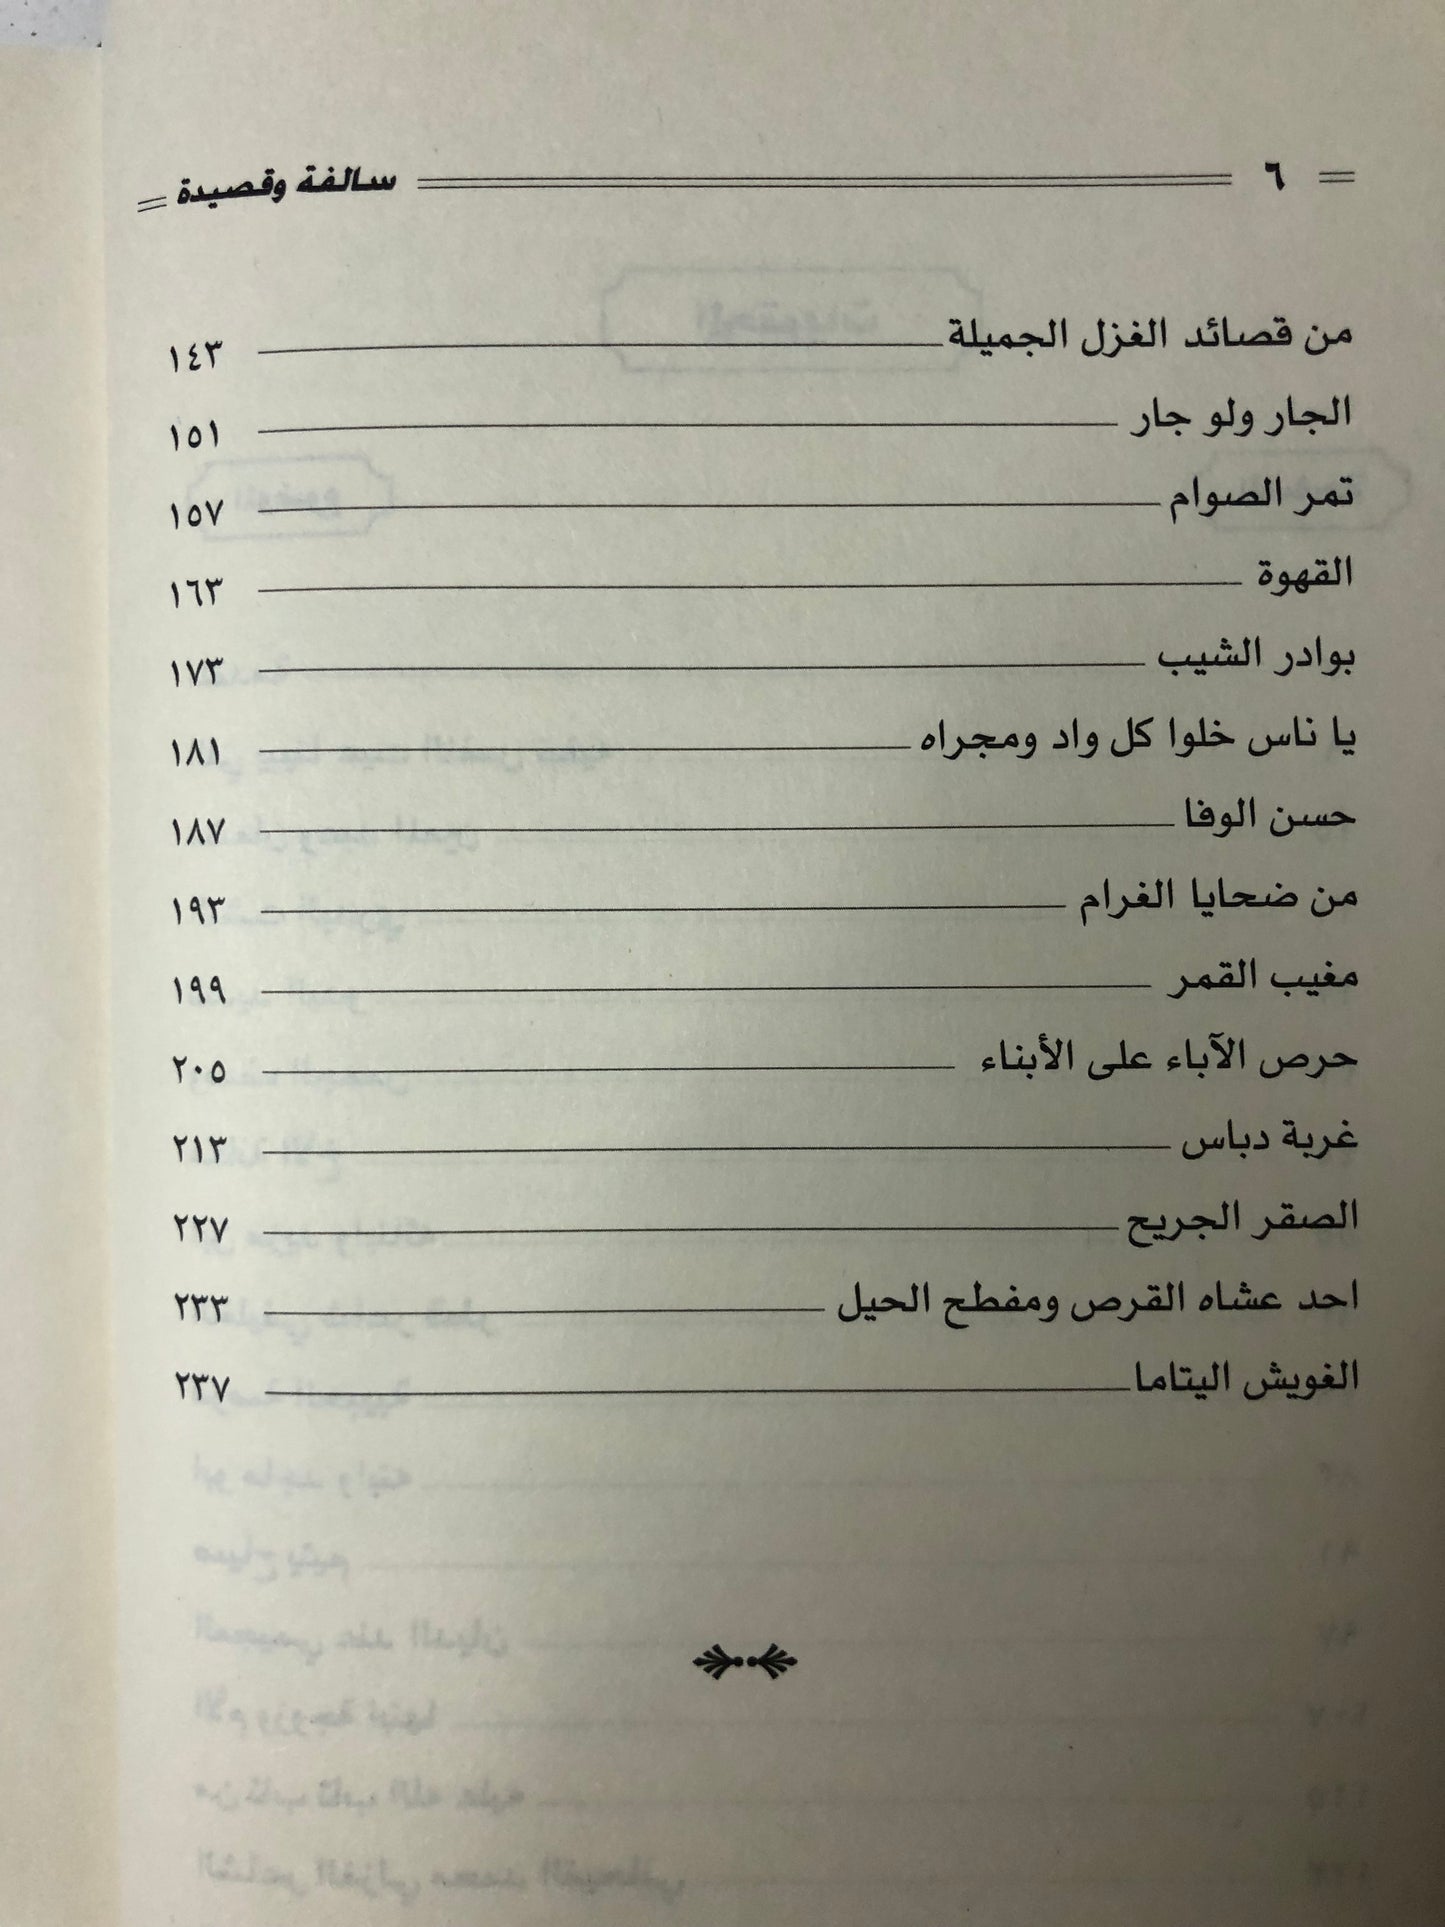 ٦ سالفة وقصيدة
من قصائد الغزل الجميلة ١٤٣
الجار ولو جار ١٥١
تمر الصوام ١٥٧
القهوة ١٦٣
بوادر الشيب ١٧٣
يا ناس خلوا كل واد ومجراه ١٨١
حسن الوفا ١٨٧
من ضحايا الغرام ١٩٣
مغيب القمر ١٩٩
حرص الآباء على الأبناء ٢٠٥
غربة دباس ٢١٣
الصقر الجريح ٢٢٧
احد عشاه القرص ومفطح الحيل ٢٣٣
الغويش اليتاما ٢٣٧